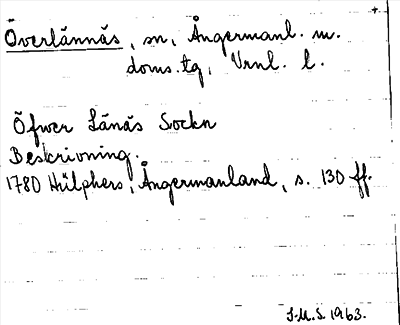 Överlännäs, sn, Ångermanl. m.
doms.tg, Vrnl. l.
Öfwer Länäs Sockn
Beskrivning.
1780 Hülphers, Ångermanland, s. 130 ff.
S.M.S. 1963.